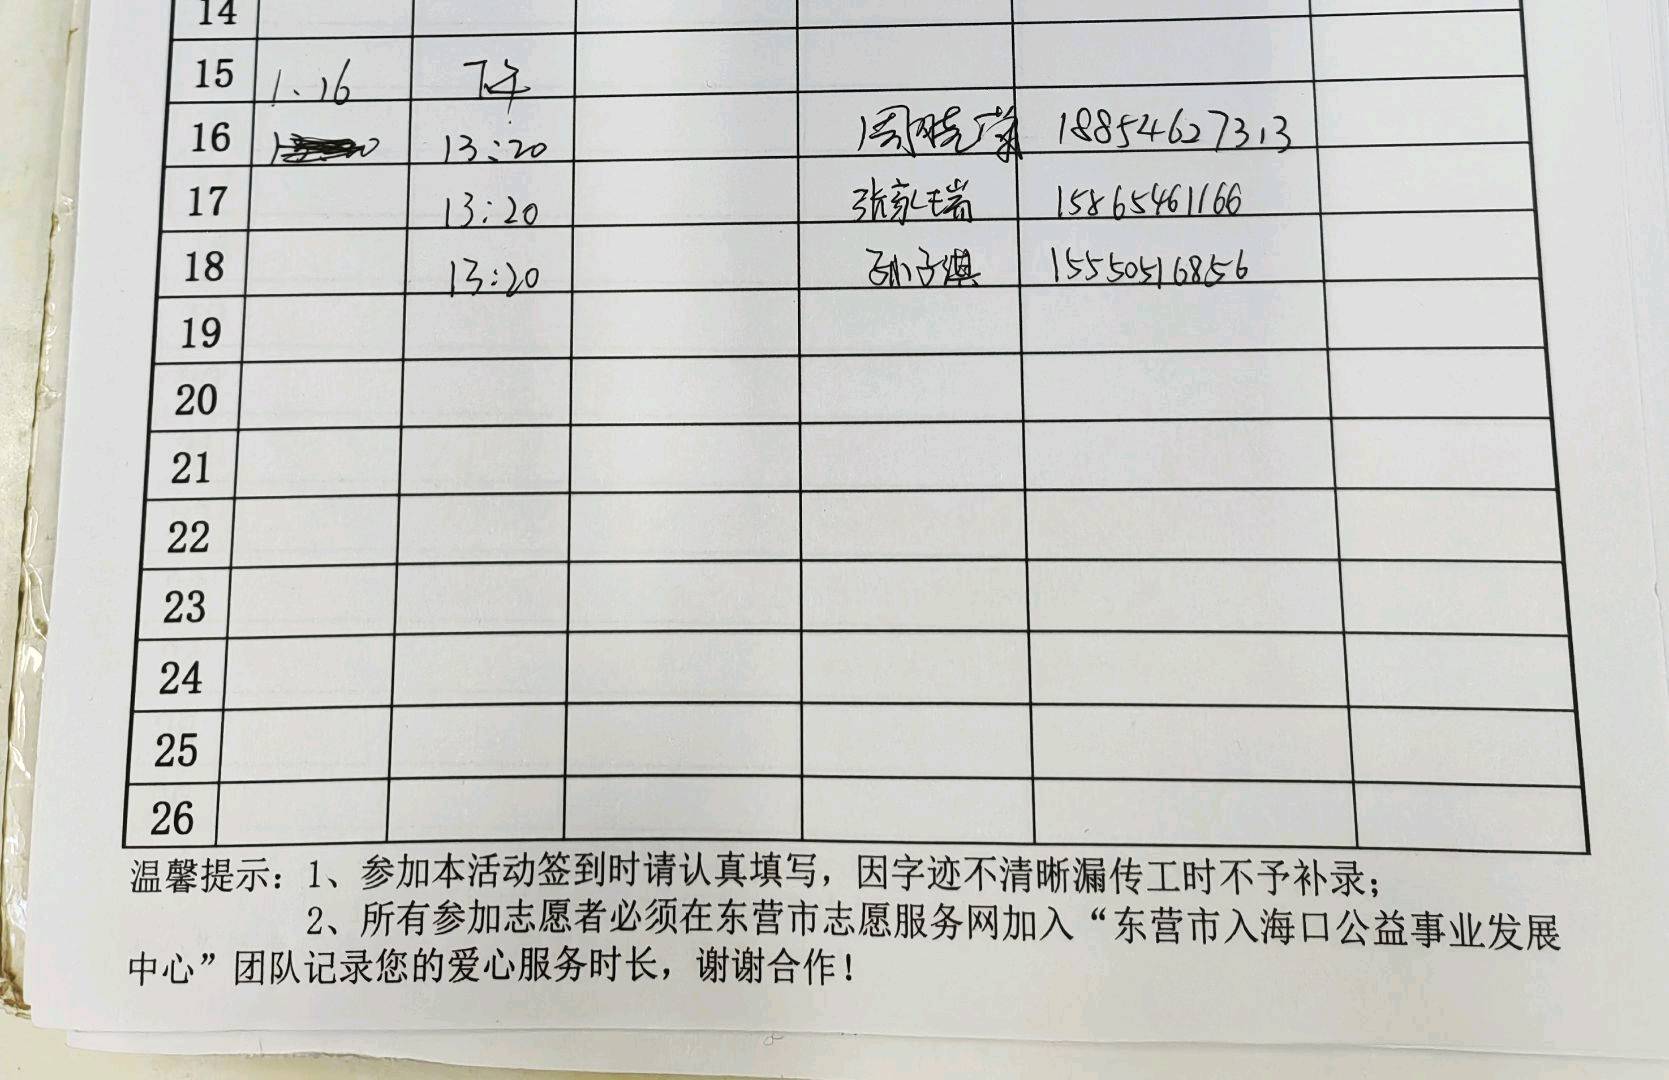 14
15 1.16 下午
16 13:20 周晓荣 18854627313
17 13:20 张家瑞 15865461166
18 13:20 孙子淇 15550516856
19
20
21
22
23
24
25
26
温馨提示：1、参加本活动签到时请认真填写，因字迹不清晰漏传工时不予补录；
2、所有参加志愿者必须在东营市志愿服务网加入“东营市入海口公益事业发展
中心”团队记录您的爱心服务时长，谢谢合作！